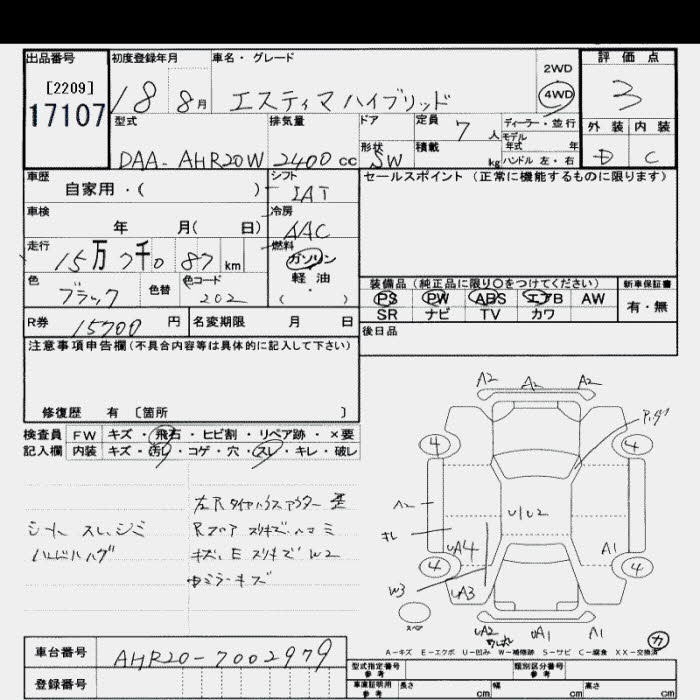 出品番号 初度登録年月 車名・グレード 評価点
[2209] 17107
18 8月 エスティマハイブリッド
2WD
4WD
3
型式 排気量 ドア 定員 7人 ディーラー・並行
モデル年式 年
外装 内装
DAA-AHR20W 2400cc 形状 SW 積載 kg ハンドル 左・右
D C
車歴 シフト セールスポイント (正常に機能するものに限ります)
自家用・( ) IAT
車検 冷房
年 月( 日) AAC
走行 燃料
15万7千087km ガソリン
軽・油
( )
色 色替 色コード
ブラック 202
装備品 (純正品に限り○をつけてください) 新車保証書
PS PW ABS エアB AW 有・無
SR ナビ TV カワ
R券 15700円 名変期限 月 日
後日品
注意事項申告欄(不具合内容等は具体的に記入して下さい)
修復歴 有 〔箇所 〕
検査員 FW キズ・飛石・ヒビ割・リペア跡・×要
記入欄 内装 キズ・汚レ・コゲ・穴・スレ・キレ・破レ
シート スレ、シミ
A2 A2 A2
4 4
U1U2
A2
キレ
UA4 A1
4 4
W3 UA3
スペア
UA2 UA1 A1
カ
A-キズ E-エクボ U-凹み W-補修跡 S-サビ C-腐食 XX-交換済
車台番号 AHR20-7002979
登録番号
型式指定番号 参考 類別区分番号 参考
車庫証明用 参考 長さ cm 幅 cm 高さ cm